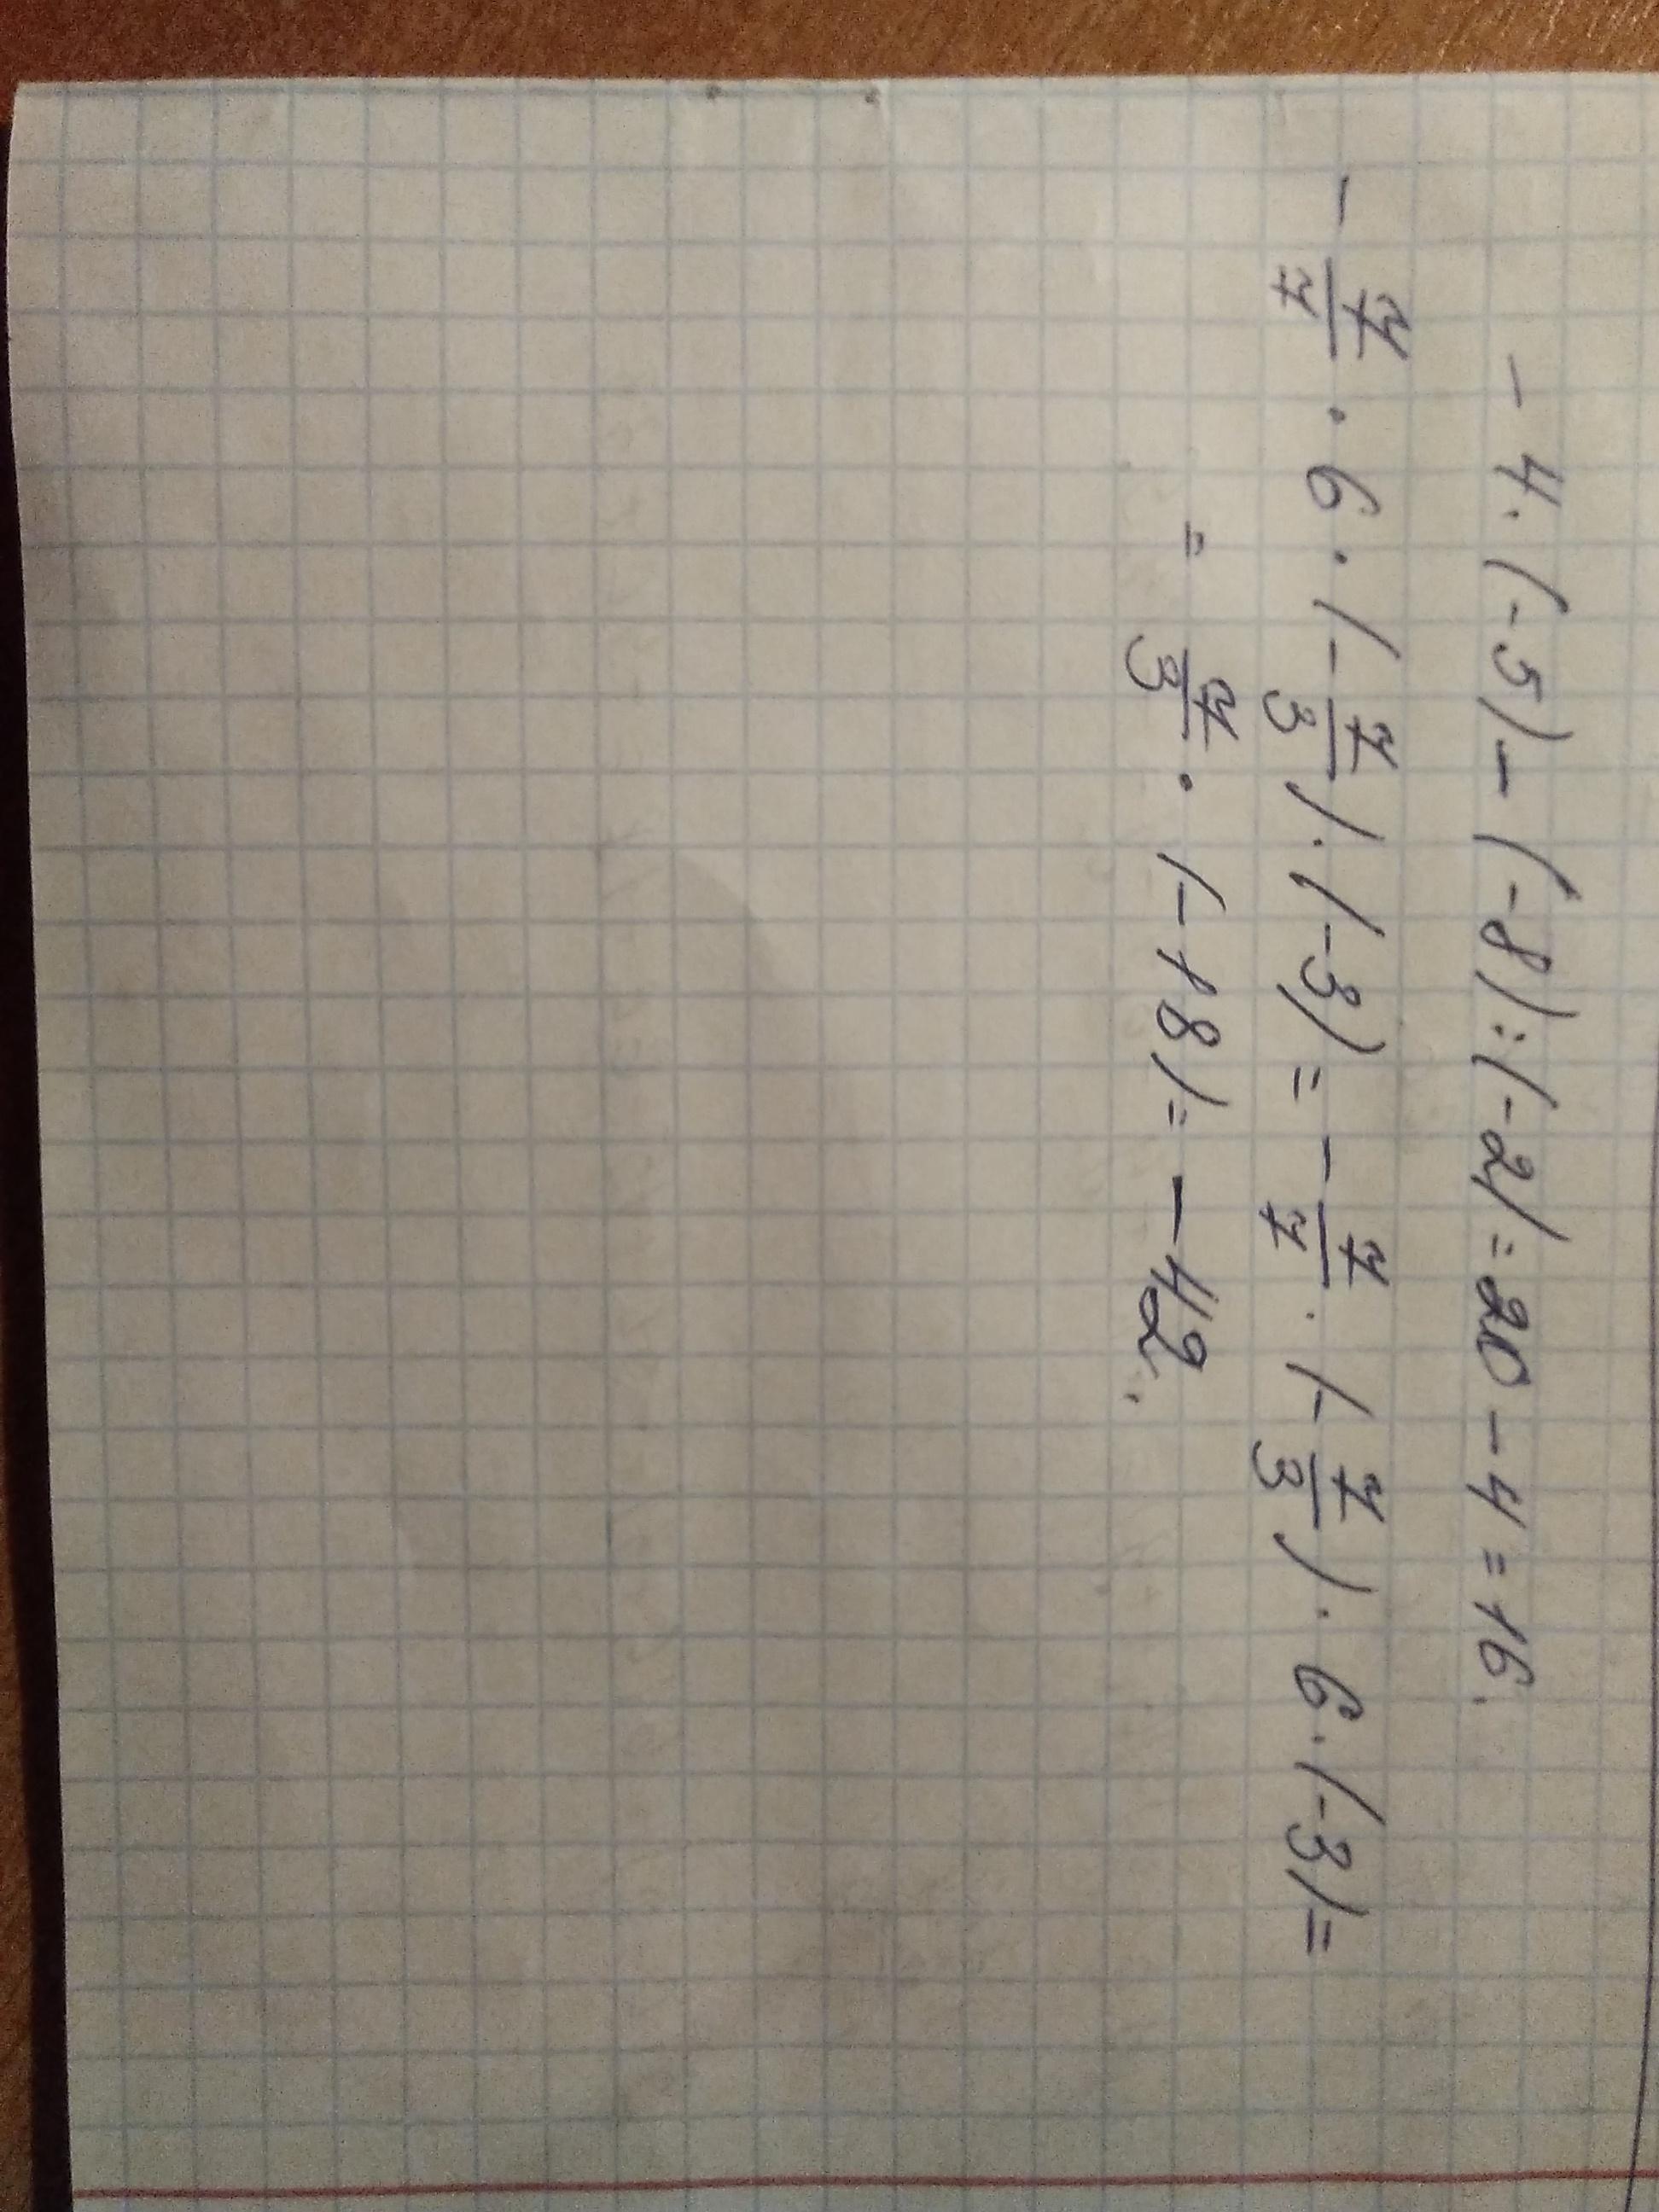 - 4 · (-5) - (-8) : (-2) = 20 - 4 = 16.
- 7/7 · 6 · (- 7/3) · (-3) = - 7/7 · (- 7/3) · 6 · (-3) =
= 7/3 · (-18) = - 42.